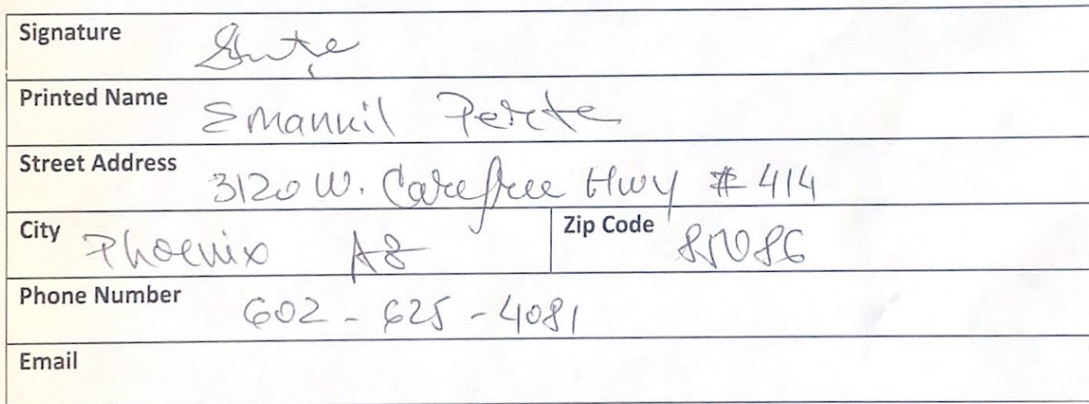 Signature
Printed Name Emanuil Perte
Street Address 3120 W. Carefree Hwy # 414
City Phoenix AZ Zip Code 85086
Phone Number 602 - 625 - 4081
Email